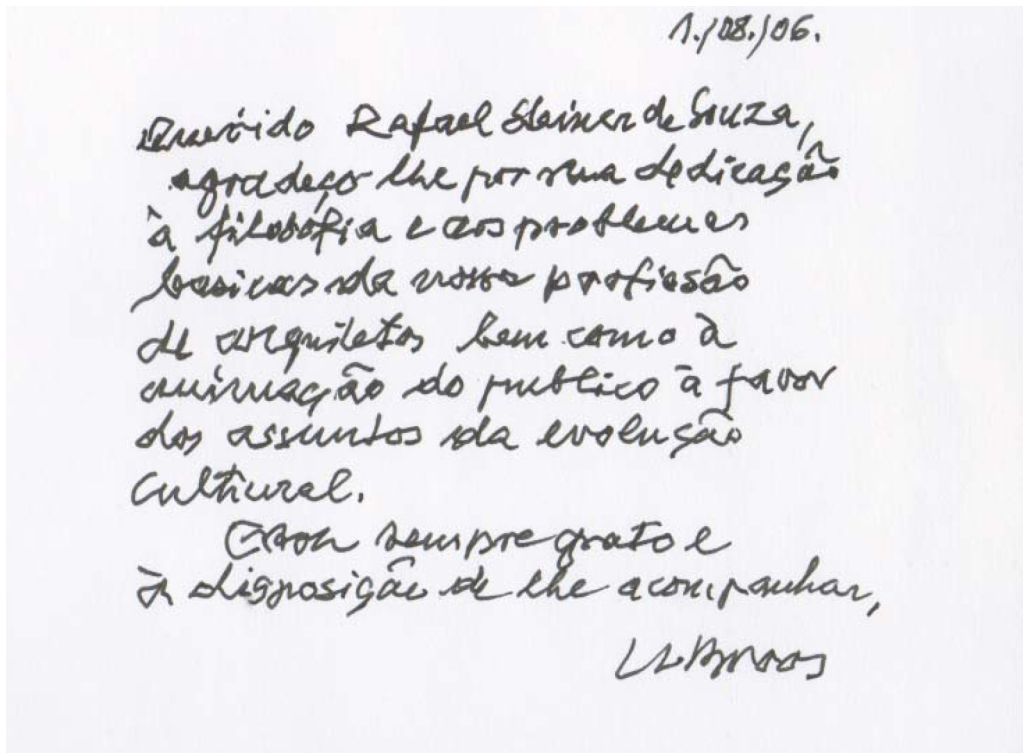 1./08./06.
Querido Rafael Steiner de Souza,
agradeço lhe por sua dedicação
à filosofia e aos problemas
basicos da nossa profissão
de arquitetos bem como à
animação do publico à favor
dos assuntos da evolução
cultural.
Estou sempre grato e
à disposição de lhe acompanhar,